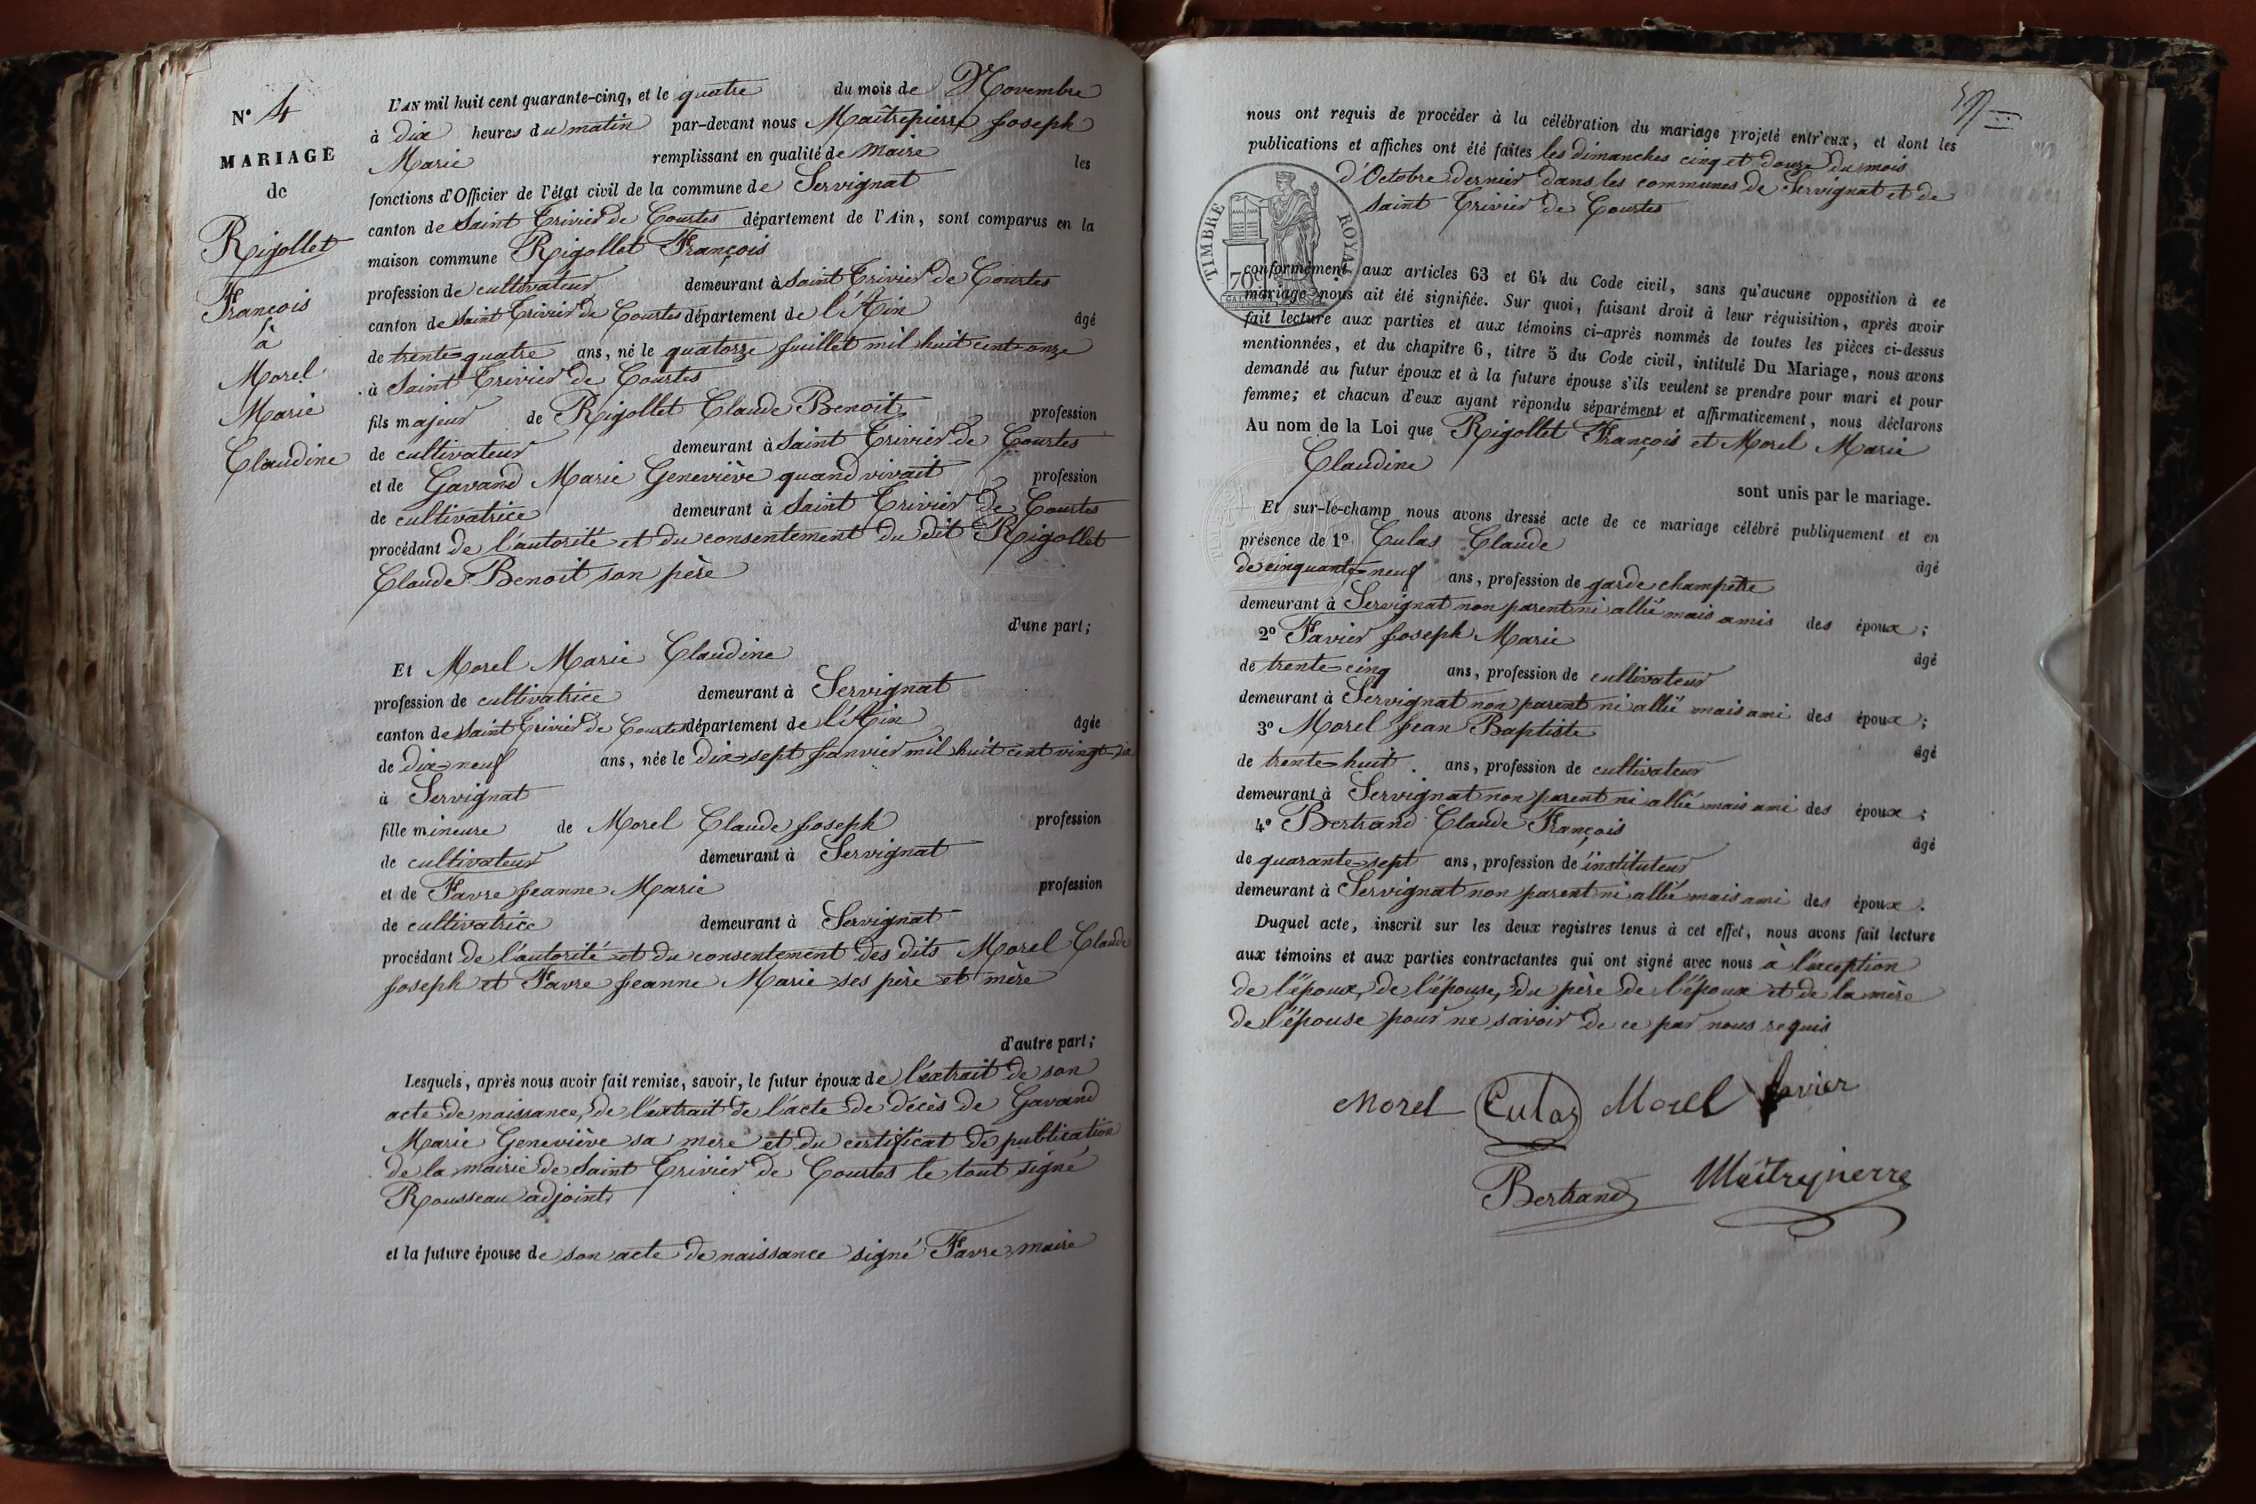 N° 4
MARIAGE
de
Rigollet
François
à
Morel
Marie
Claudine
L'AN mil huit cent quarante-cinq, et le quatre du mois de Novembre
à dix heures du matin par-devant nous Maîtrepierre Joseph
Marie remplissant en qualité de maire les
fonctions d'Officier de l'état civil de la commune de Servignat
canton de Saint Trivier de Courtes département de l'Ain, sont comparus en la
maison commune Rigollet François
profession de cultivateur demeurant à Saint Trivier de Courtes
canton de Saint Trivier de Courtes département de l'Ain âgé
de trente-quatre ans, né le quatorze Juillet mil huit cent onze
à Saint Trivier de Courtes
fils majeur de Rigollet Claude Benoit profession
de cultivateur demeurant à Saint Trivier de Courtes
et de Gavand Marie Geneviève quand vivait profession
de cultivatrice demeurant à Saint Trivier de Courtes
procédant de l'autorité et du consentement du dit Rigollet
Claude Benoit son père
d'une part;
Et Morel Marie Claudine
profession de cultivatrice demeurant à Servignat
canton de Saint Trivier de Courtes département de l'Ain âgée
de dix-neuf ans, née le dix-sept Janvier mil huit cent vingt-six
à Servignat
fille mineure de Morel Claude Joseph profession
de cultivateur demeurant à Servignat
et de Favre Jeanne Marie profession
de cultivatrice demeurant à Servignat
procédant de l'autorité et du consentement des dits Morel Claude
Joseph et Favre Jeanne Marie ses père et mère
d'autre part;
Lesquels, après nous avoir fait remise, savoir, le futur époux de l'extrait de son
acte de naissance, de l'extrait de l'acte de décès de Gavand
Marie Geneviève sa mère et du certificat de publication
de la mairie de Saint Trivier de Courtes le tout signé
Rousseau adjoint
et la future épouse de son acte de naissance signé Favre maire
nous ont requis de procéder à la célébration du mariage projeté entr'eux, et dont les
publications et affiches ont été faites les dimanches cinq et douze du mois
d'Octobre dernier dans les communes de Servignat et de
Saint Trivier de Courtes
TIMBRE ROYAL
70c
conformément aux articles 63 et 64 du Code civil, sans qu'aucune opposition à ce
mariage nous ait été signifiée. Sur quoi, faisant droit à leur réquisition, après avoir
fait lecture aux parties et aux témoins ci-après nommés de toutes les pièces ci-dessus
mentionnées, et du chapitre 6, titre 5 du Code civil, intitulé Du Mariage, nous avons
demandé au futur époux et à la future épouse s'ils veulent se prendre pour mari et pour
femme; et chacun d'eux ayant répondu séparément et affirmativement, nous déclarons
Au nom de la Loi que Rigollet François et Morel Marie
Claudine
sont unis par le mariage.
Et sur-le-champ nous avons dressé acte de ce mariage célébré publiquement et en
présence de 1° Culas Claude âgé
de cinquante-neuf ans, profession de garde champêtre
demeurant à Servignat non parent ni allié mais amis des époux;
2° Favier Joseph Marie âgé
de trente-cinq ans, profession de cultivateur
demeurant à Servignat non parent ni allié mais ami des époux;
3° Morel Jean Baptiste âgé
de trente-huit ans, profession de cultivateur
demeurant à Servignat non parent ni allié mais ami des époux;
4° Bertrand Claude François âgé
de quarante-sept ans, profession de instituteur
demeurant à Servignat non parent ni allié mais ami des époux.
Duquel acte, inscrit sur les deux registres tenus à cet effet, nous avons fait lecture
aux témoins et aux parties contractantes qui ont signé avec nous à l'exception
de l'époux, de l'épouse, du père de l'époux et de la mère
de l'épouse pour ne savoir de ce par nous requis
Morel Culas Morel Favier
Bertrand Maîtrepierre